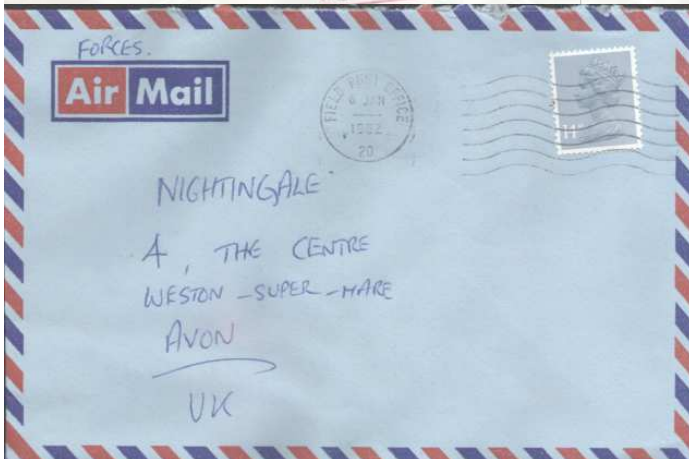 FORCES.
Air Mail
FIELD POST OFFICE
6 JAN
1982
20
NIGHTINGALE
4, THE CENTRE
WESTON-SUPER-MARE
AVON
UK